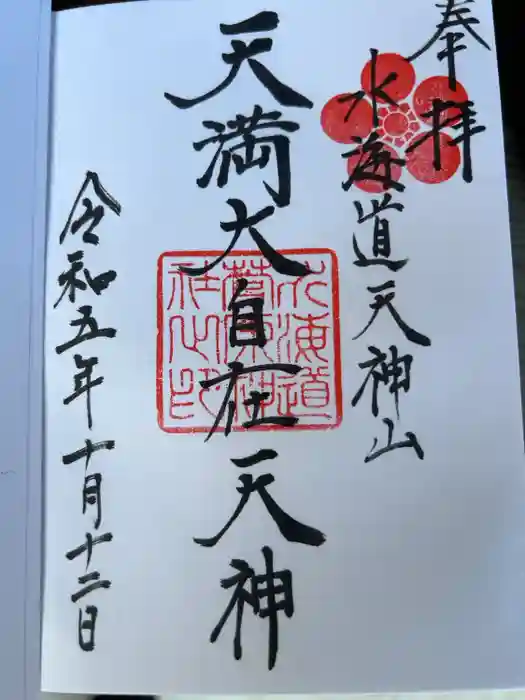 奉拝
水海道天神山
天満大自在天神
水海道
菅原神
社之印
令和五年十月十二日